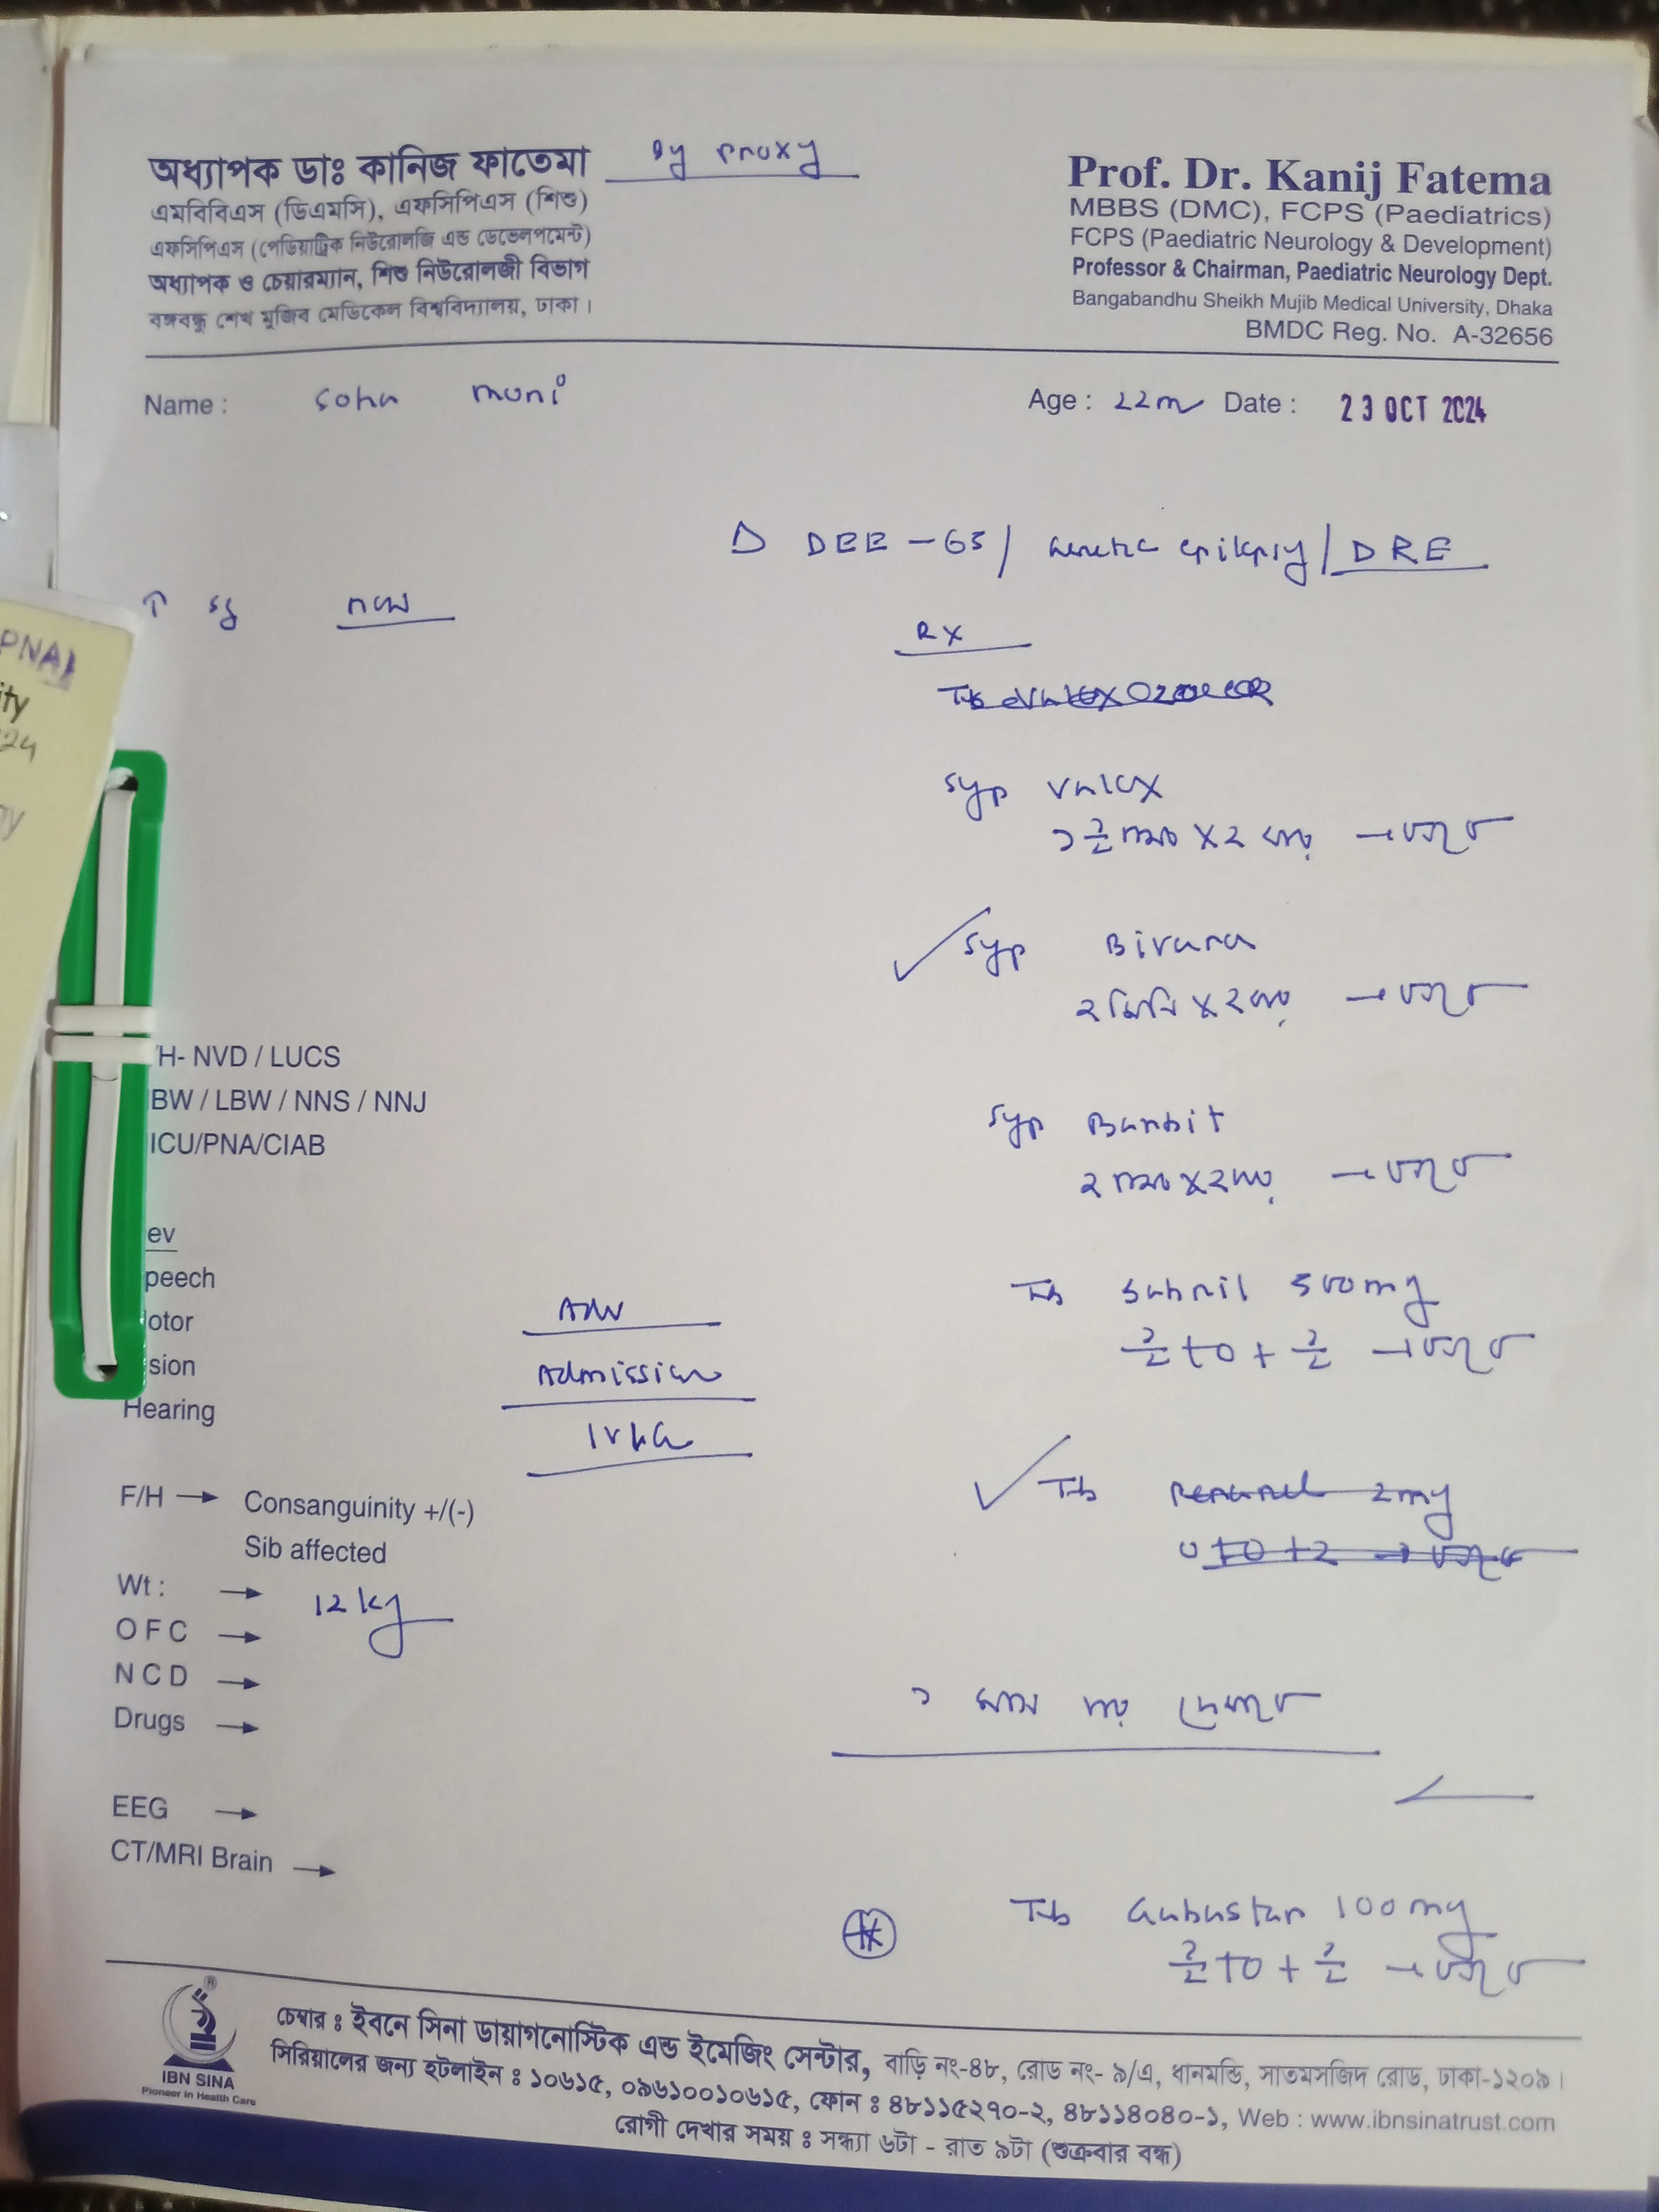 অধ্যাপক ডাঃ কানিজ ফাতেমা
by proxy
এমবিবিএস (ডিএমসি), এফসিপিএস (শিশু)
এফসিপিএস (পেডিয়াট্রিক নিউরোলজি এন্ড ডেভেলপমেন্ট)
অধ্যাপক ও চেয়ারম্যান, শিশু নিউরোলজী বিভাগ
বঙ্গবন্ধু শেখ মুজিব মেডিকেল বিশ্ববিদ্যালয়, ঢাকা।
Prof. Dr. Kanij Fatema
MBBS (DMC), FCPS (Paediatrics)
FCPS (Paediatric Neurology & Development)
Professor & Chairman, Paediatric Neurology Dept.
Bangabandhu Sheikh Mujib Medical University, Dhaka
BMDC Reg. No. A-32656
Name : Soha moni Age : 22m Date : 23 OCT 2024
DEE - 63 / Genetic epilepsy / DRE
Rx
Syp Valex
১ ১/২ চামচ X ২ বার → চলবে
Syp Bivara
২ মিলি X ২ বার → চলবে
Syp
২ চামচ X ২ বার → চলবে
Tb Sabril 500mg
১/২ + ০ + ১/২ → চলবে
Tb 2mg
০ + ০ + ২ → চলবে
১ মাস পর দেখাবে
Tb Gabastar 100mg
১/২ + ০ + ১/২ → চলবে
PNA
ity
24
H- NVD / LUCS
BW / LBW / NNS / NNJ
ICU/PNA/CIAB
ev
peech
otor
sion
Hearing
Adv
Admission
F/H → Consanguinity +/(-)
Sib affected
Wt : → 12 kg
O F C →
N C D →
Drugs →
EEG →
CT/MRI Brain →
IBN SINA
Pioneer in Health Care
চেম্বার : ইবনে সিনা ডায়াগনোস্টিক এন্ড ইমেজিং সেন্টার, বাড়ি নং-৪৮, রোড নং- ৯/এ, ধানমন্ডি, সাতমসজিদ রোড, ঢাকা-১২০৯।
সিরিয়ালের জন্য হটলাইন : ১০৬১৫, ০৯৬১০০১০৬১৫, ফোন : ৪৮১১৫২৭০-২, ৪৮১১৪০৪০-১, Web : www.ibnsinatrust.com
রোগী দেখার সময় : সন্ধ্যা ৬টা - রাত ৯টা (শুক্রবার বন্ধ)